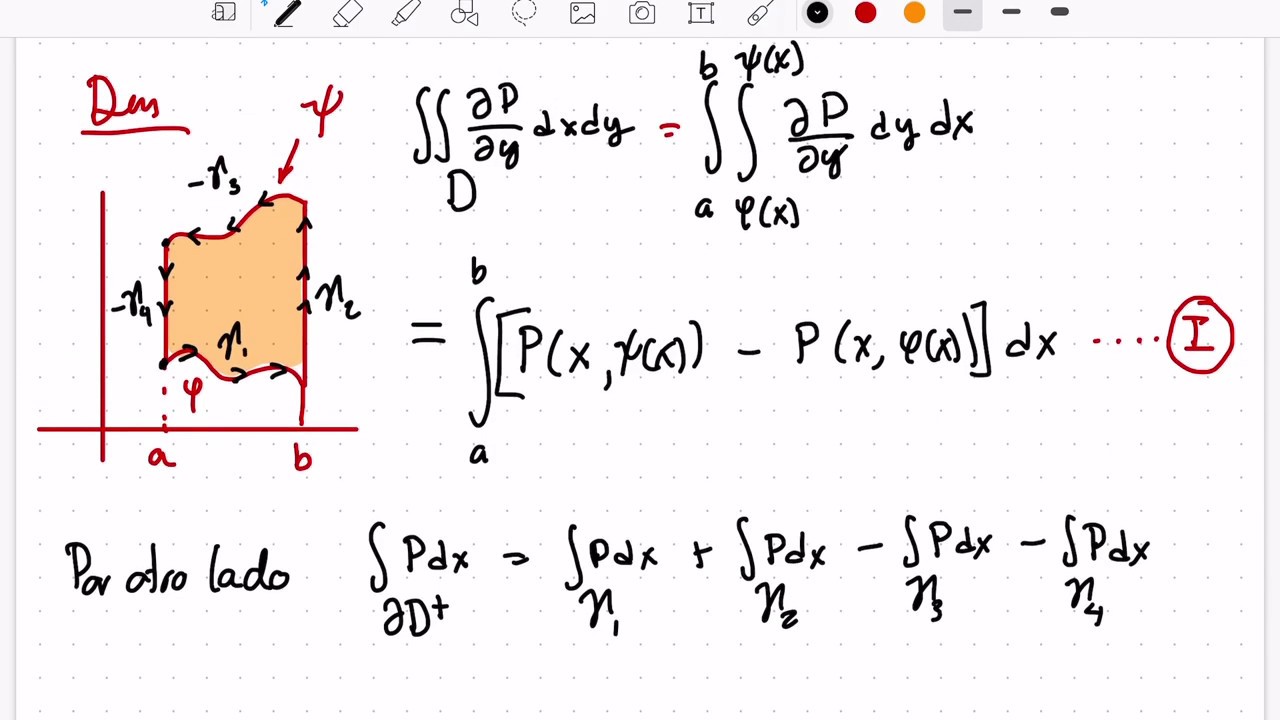 Dem
ψ
-γ₃
-γ₄
γ₂
γ₁
φ
a b
∬_D ∂P/∂y dxdy = ∫_a^b ∫_{φ(x)}^{ψ(x)} ∂P/∂y dy dx
= ∫_a^b [P(x, ψ(x)) - P(x, φ(x))] dx ..... I
Por otro lado ∫_{∂D⁺} Pdx = ∫_{γ₁} Pdx + ∫_{γ₂} Pdx - ∫_{γ₃} Pdx - ∫_{γ₄} Pdx